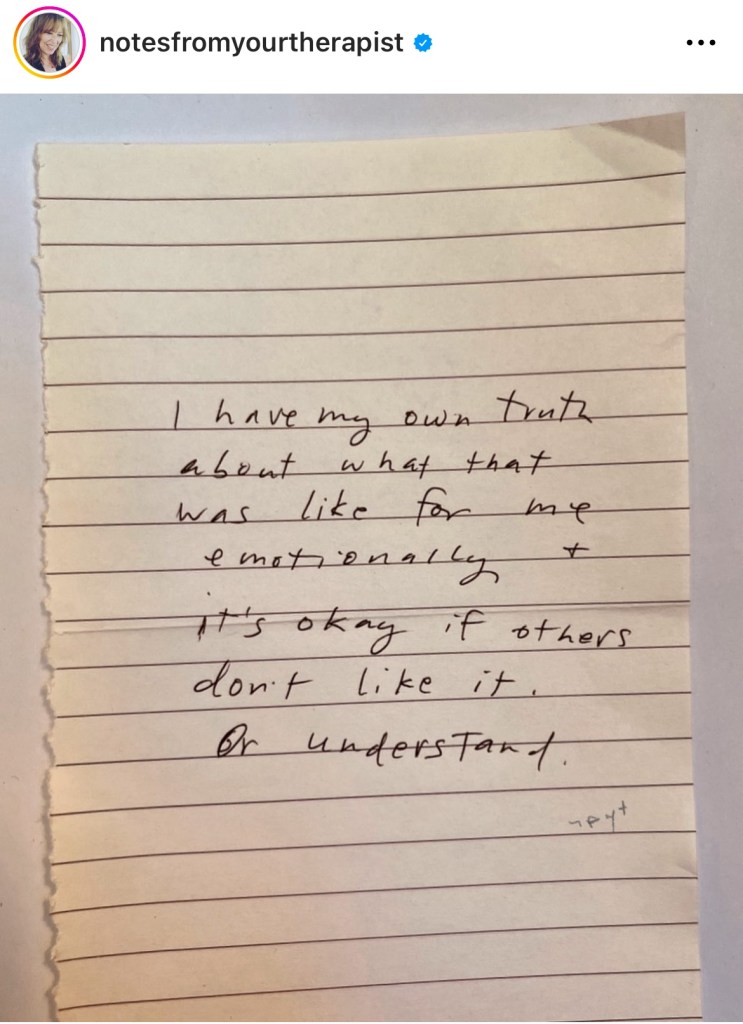 notesfromyourtherapist
I have my own truth
about what that
was like for me
emotionally +
it's okay if others
don't like it.
Or understand.
nfyt